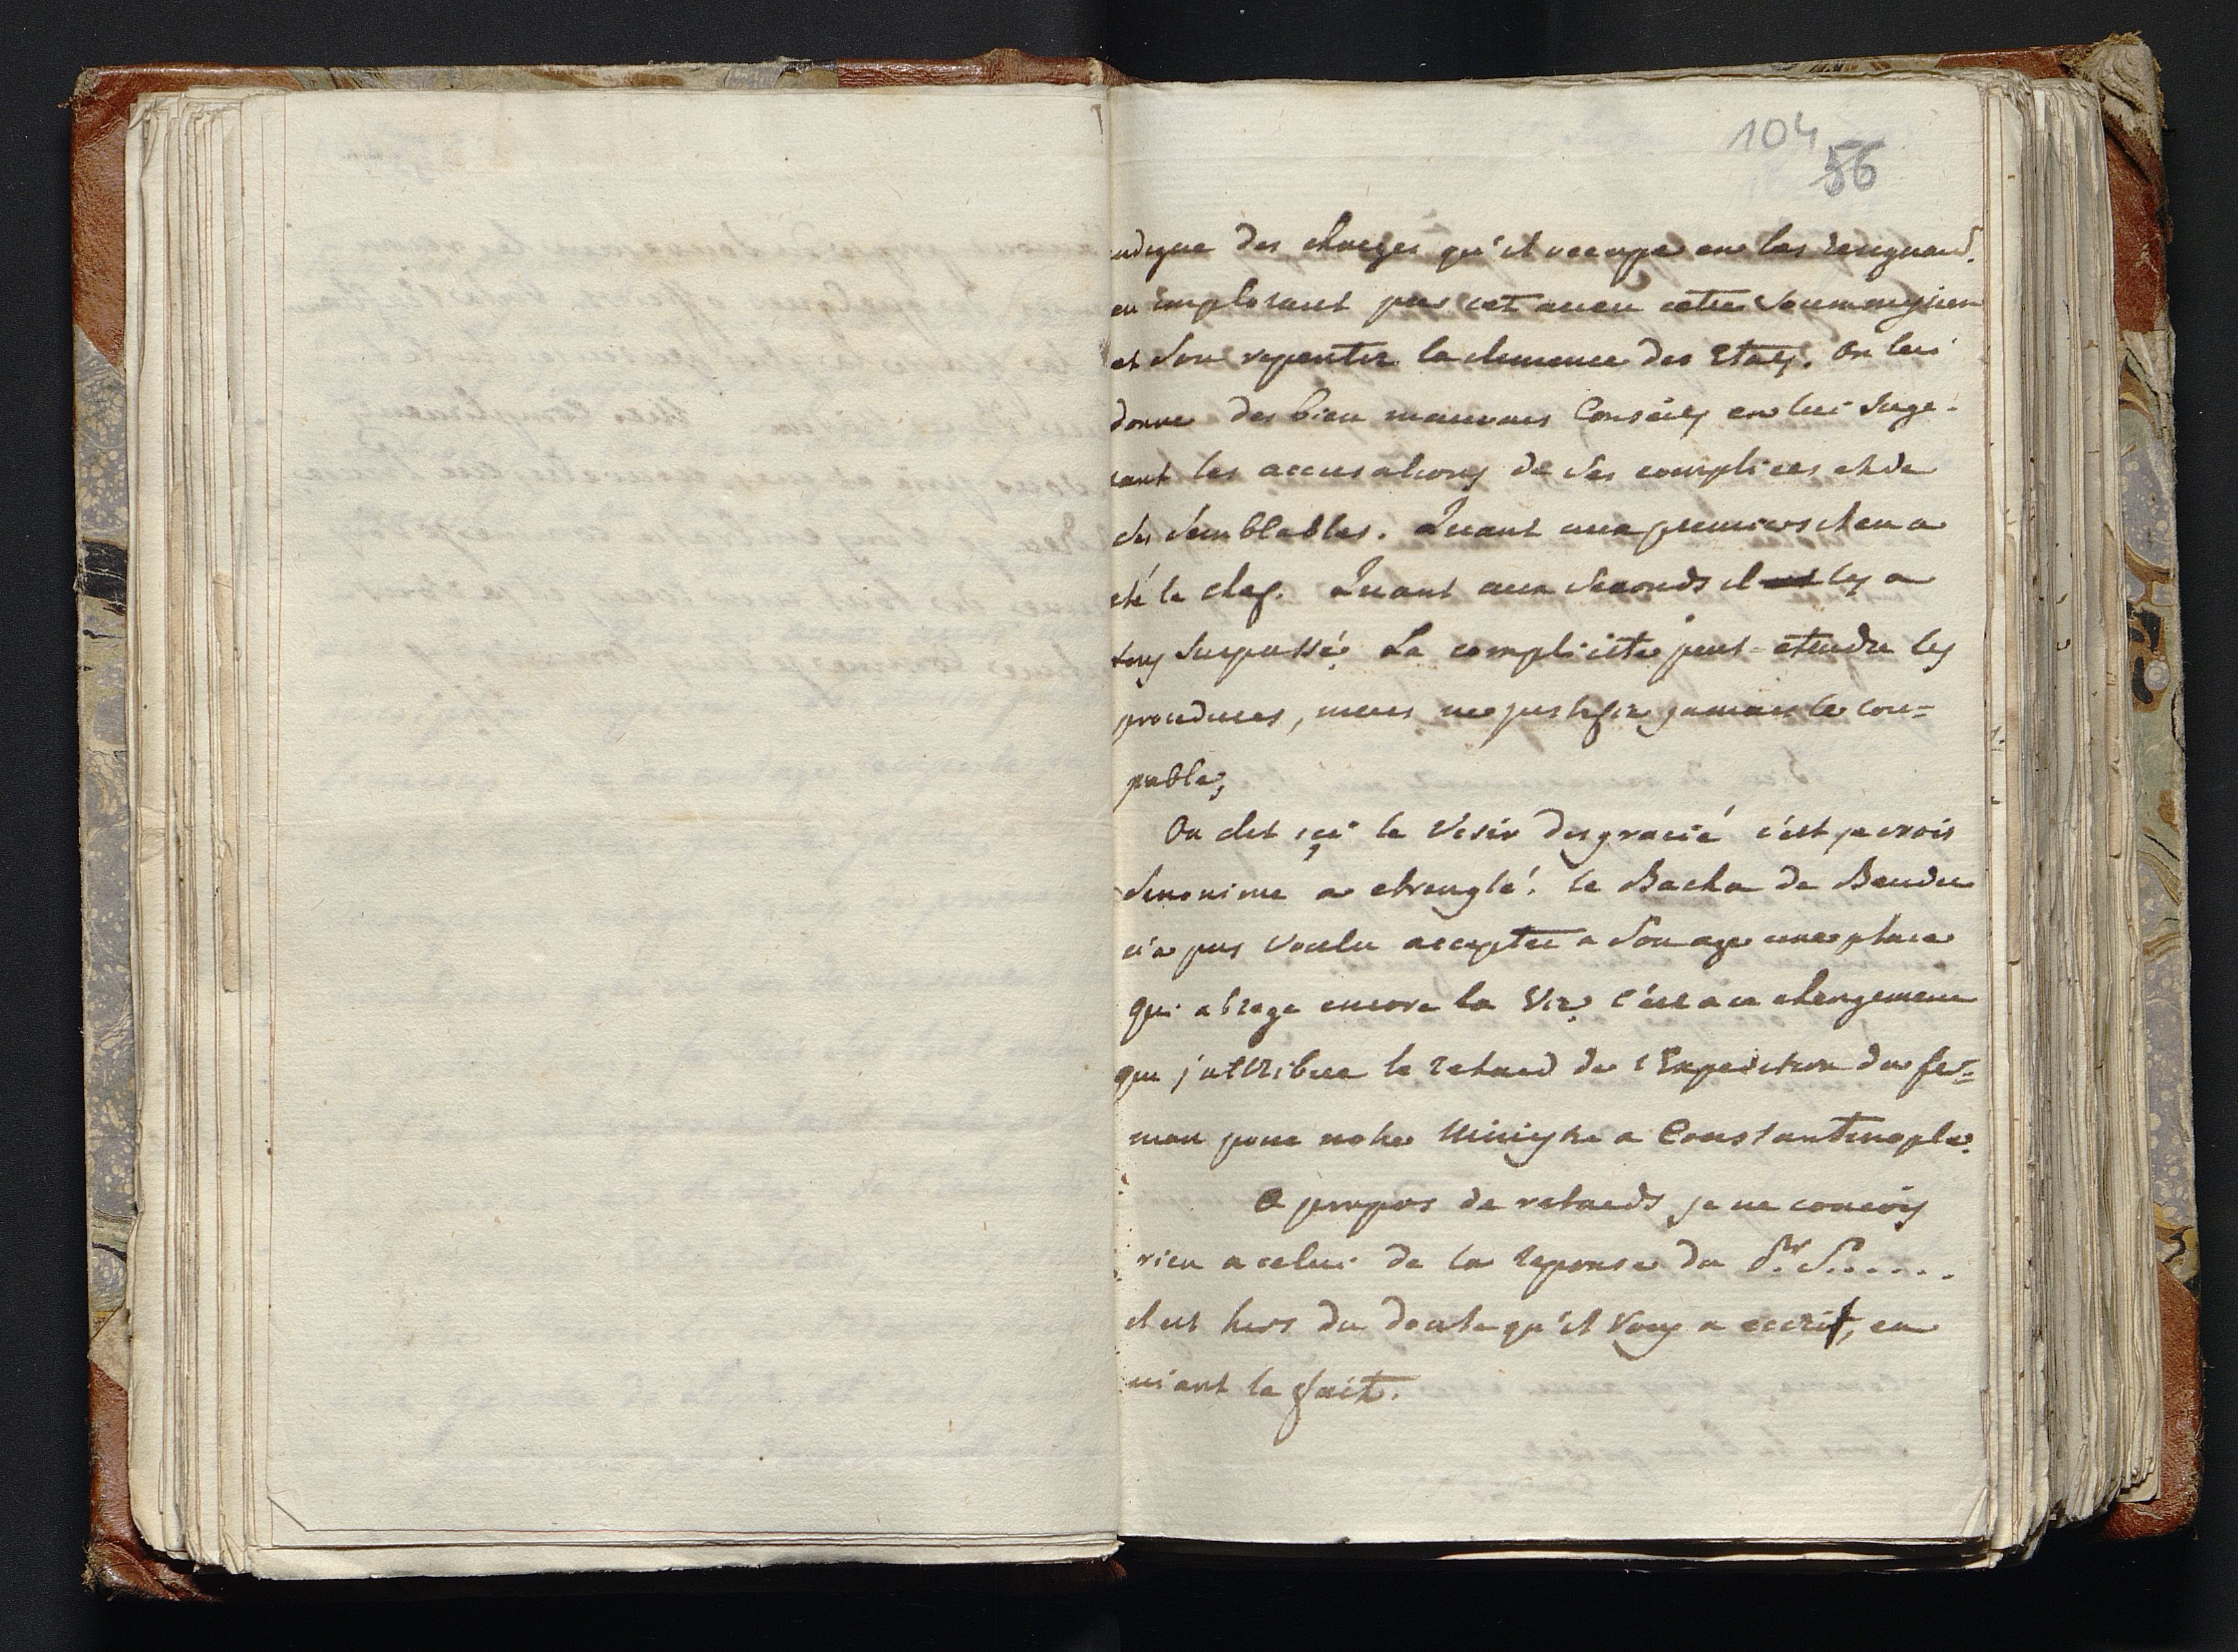 104
56
indigne des charges qu'il occupe en les resignand.
en implorant par cet aveu cette soumission
et son repentir la clemence des Etats. On lui
donne des bien mauvais Conseils en lui suge-
rant les accusations de ses complices et de
ses semblables. Quant aux premiers il en a
été le chef. Quant aux seconds il les a
tous surpassé. La complicité peut etendre les
procedures, mais ne justifie jamais le cou=
pable,
On dit ici le Visir desgracié c'est je crois
sinonime a etranglé. le Bacha de Bender
n'a pas voulu accepter a son age une place
qui abrege encore la Vie. C'est a ce changement
que j'attribue le retard de l'Expedition du fir=
man pour notre Ministre a Constantinople.
A propos de retards je ne concois
rien a celui de la reponse du Sr. S......
il est hors du doute qu'il Vous a ecrit, en
niant le fait.